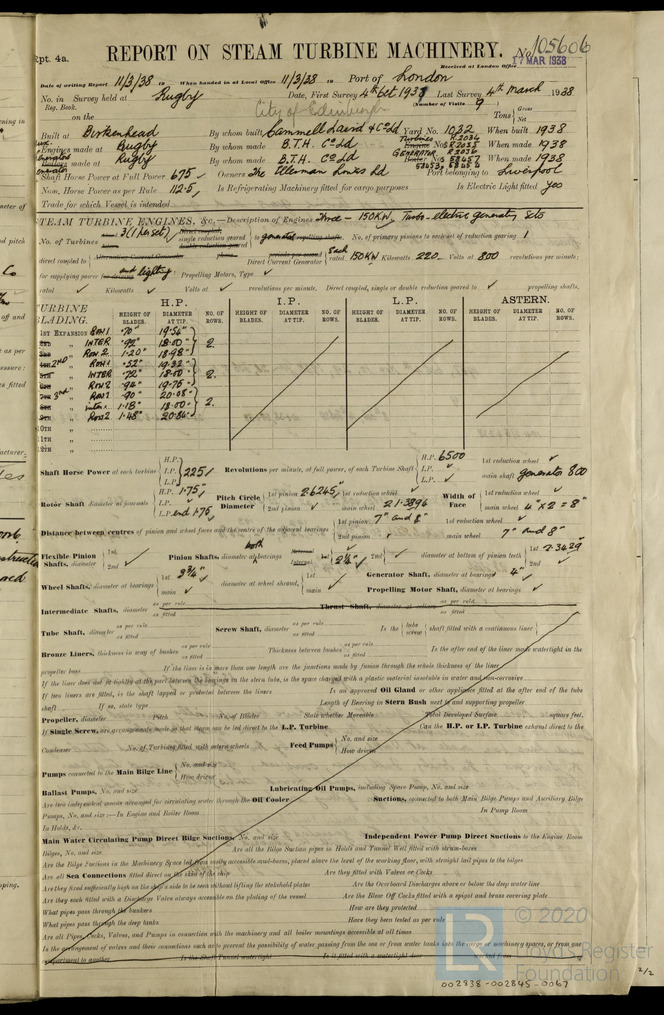 Rpt. 4a.
REPORT ON STEAM TURBINE MACHINERY. No. 105606
17 MAR 1938
Received at London Office
Date of writing Report 11/3/38 19 When handed in at Local Office 11/3/38 19 Port of London
No. in Survey held at Rugby Date, First Survey 4th Oct 1937 Last Survey 4th March 1938
Reg. Book. (Number of Visits 9)
on the City of Edinburgh Tons Gross Net
Built at Birkenhead By whom built Cammell Laird & Co Ld Yard No. 1032 When built 1938
Engines made at Rugby By whom made B.T.H. Co Ld When made 1938
Boilers made at Rugby By whom made B.T.H. Co Ld GENERATOR When made 1938
Shaft Horse Power at Full Power 675 Owners The Ellerman Lines Ld Port belonging to Liverpool
Nom. Horse Power as per Rule 112.5 Is Refrigerating Machinery fitted for cargo purposes Is Electric Light fitted Yes
Trade for which Vessel is intended
STEAM TURBINE ENGINES, &c.—Description of Engines Three - 150KW Turbo-electric generating sets
No. of Turbines 3 (1 per set) to generator No. of primary pinions to each set of reduction gearing 1
direct coupled to Alternating Current Generator Direct Current Generator Each rated 150KW Kilowatts 220 Volts at 800 revolutions per minute;
for supplying power and lighting Propelling Motors, Type ✓
rated ✓ Kilowatts ✓ Volts at ✓ revolutions per minute. Direct coupled, single or double reduction geared to ✓ propelling shafts.
TURBINE BLADING. H.P. I.P. L.P. ASTERN.
HEIGHT OF BLADES. DIAMETER AT TIP. NO. OF ROWS. HEIGHT OF BLADES. DIAMETER AT TIP. NO. OF ROWS. HEIGHT OF BLADES. DIAMETER AT TIP. NO. OF ROWS. HEIGHT OF BLADES. DIAMETER AT TIP. NO. OF ROWS.
1ST EXPANSION Row 1 .70" 19.56"
" INTER .92" 18.00" 2.
" Row 2 1.20" 18.98"
2nd " Row 1 .52" 19.32"
" INTER .72" 18.00" 2.
" Row 2 .94" 19.75"
3rd " Row 1 .90" 20.08"
" Inter 1.18" 18.00" 2.
" Row 2 1.48" 20.84"
11TH "
12TH "
Shaft Horse Power at each turbine H.P. I.P. L.P. 225 Revolutions per minute, at full power, of each Turbine Shaft H.P. 6500 I.P. ✓ L.P. ✓ 1st reduction wheel ✓ main shaft generator 800
Rotor Shaft diameter at journals H.P. 1.75" I.P. ✓ L.P. end 1.75 Pitch Circle Diameter 1st pinion 2.6245 2nd pinion ✓ 1st reduction wheel ✓ main wheel 21.3896 Width of Face 1st reduction wheel ✓ main wheel 4" x 2 = 8"
Distance between centres of pinion and wheel faces and the centre of the adjacent bearings 1st pinion 7" and 8" 2nd pinion ✓ 1st reduction wheel ✓ main wheel 7" and 8"
Flexible Pinion Shafts, diameter 1st 2nd ✓ Pinion Shafts, diameter at both bearings External Internal 1st 2¼" 2nd ✓ diameter at bottom of pinion teeth 1st 2.3429 2nd ✓
Wheel Shafts, diameter at bearings 1st 3¾" main ✓ diameter at wheel shroud, 1st ✓ main ✓ Generator Shaft, diameter at bearings 4" Propelling Motor Shaft, diameter at bearings ✓
Intermediate Shafts, diameter as per rule as fitted Thrust Shaft, diameter at collars as per rule as fitted
Tube Shaft, diameter as per rule as fitted Screw Shaft, diameter as per rule as fitted Is the tube screw shaft fitted with a continuous liner
Bronze Liners, thickness in way of bushes as per rule as fitted Thickness between bushes as per rule as fitted Is the after end of the liner made watertight in the
propeller boss If the liner is in more than one length are the junctions made by fusion through the whole thickness of the liner
If the liner does not fit tightly at the part between the bearings in the stern tube, is the space charged with a plastic material insoluble in water and non-corrosive
If two liners are fitted, is the shaft lapped or protected between the liners Is an approved Oil Gland or other appliance fitted at the after end of the tube
shaft If so, state type Length of Bearing in Stern Bush next to and supporting propeller
Propeller, diameter Pitch No. of Blades State whether Moveable Total Developed Surface square feet.
If Single Screw, are arrangements made so that steam can be led direct to the L.P. Turbine Can the H.P. or I.P. Turbine exhaust direct to the
Condenser No. of Turbines fitted with astern wheels Feed Pumps No. and size How driven
Pumps connected to the Main Bilge Line No. and size How driven
Ballast Pumps, No. and size Lubricating Oil Pumps, including Spare Pump, No. and size
Are two independent means arranged for circulating water through the Oil Cooler Suctions, connected to both Main Bilge Pumps and Auxiliary Bilge
Pumps, No. and size:—In Engine and Boiler Room In Pump Room
In Holds, &c.
Main Water Circulating Pump Direct Bilge Suctions, No. and size Independent Power Pump Direct Suctions to the Engine Room
Bilges, No. and size Are all the Bilge Suction pipes in Holds and Tunnel Well fitted with strum-boxes
Are the Bilge Suctions in the Machinery Space led from easily accessible mud-boxes, placed above the level of the working floor, with straight tail pipes to the bilges
Are all Sea Connections fitted direct on the skin of the ship Are they fitted with Valves or Cocks
Are they fixed sufficiently high on the ship's side to be seen without lifting the stokehold plates Are the Overboard Discharges above or below the deep water line
Are they each fitted with a Discharge Valve always accessible on the plating of the vessel Are the Blow Off Cocks fitted with a spigot and brass covering plate
What pipes pass through the bunkers How are they protected
What pipes pass through the deep tanks Have they been tested as per rule
Are all Pipes, Cocks, Valves, and Pumps in connection with the machinery and all boiler mountings accessible at all times
Is the arrangement of valves and their connections such as to prevent the possibility of water passing from the sea or from water tanks into the cargo or machinery spaces, or from one
compartment to another Is the Shaft Tunnel watertight Is it fitted with a watertight door worked from
LR © 2020 Lloyd's Register Foundation
002838-002845-0067
2/2